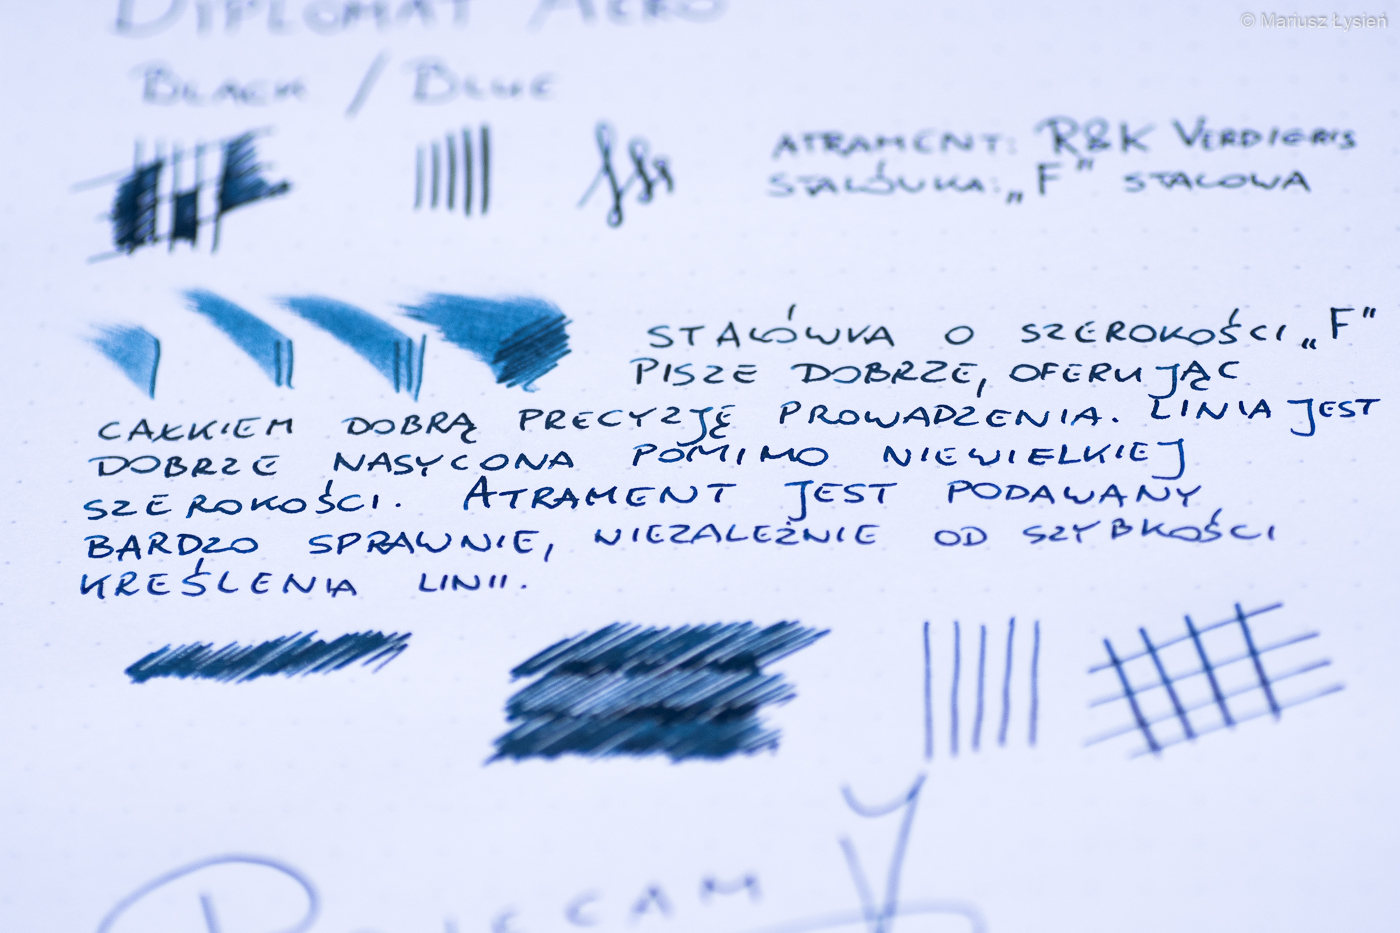 © Mariusz Łysień
DIPLOMAT AERO
BLACK / BLUE
ATRAMENT: R&K VERDIGRIS
STALÓWKA: „F” STALOWA
STALÓWKA O SZEROKOŚCI „F”
PISZE DOBRZE, OFERUJĄC
CAŁKIEM DOBRĄ PRECYZJĘ PROWADZENIA. LINIA JEST
DOBRZE NASYCONA POMIMO NIEWIELKIEJ
SZEROKOŚCI. ATRAMENT JEST PODAWANY
BARDZO SPRAWNIE, NIEZALEŻNIE OD SZYBKOŚCI
KREŚLENIA LINII.
POLECAM